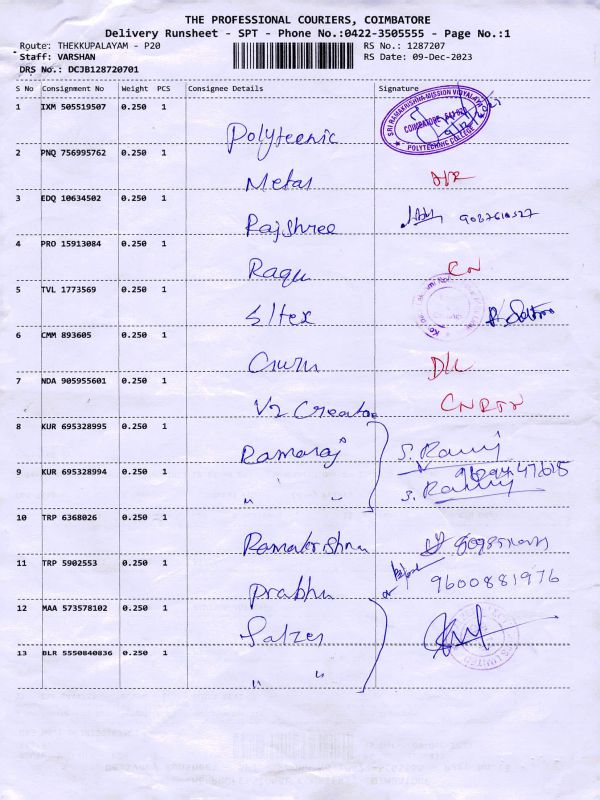 THE PROFESSIONAL COURIERS, COIMBATORE
Delivery Runsheet - SPT - Phone No.:0422-3505555 - Page No.:1
Route: THEKKUPALAYAM - P20 RS No.: 1287207
Staff: VARSHAN RS Date: 09-Dec-2023
DRS No.: DCJB128720701
S No Consignment No Weight PCS Consignee Details Signature
1 IXM 505519507 0.250 1
SRI RAMAKRISHNA MISSION VIDYALAYA
POLYTECHNIC COLLEGE
Polyteenic
2 PNQ 756995762 0.250 1
Metal
3 EDQ 10634502 0.250 1
Rajshree
4 PRO 15913084 0.250 1
Ragu
5 TVL 1773569 0.250 1
Eltex
6 CMM 893605 0.250 1
7 NDA 905955601 0.250 1
V2 Creator
8 KUR 695328995 0.250 1
Ramaraj S. Ramij
9 KUR 695328994 0.250 1
" " S. Ramij
10 TRP 6368026 0.250 1
Ramakrishna
11 TRP 5902553 0.250 1
Prabhu 9600881976
12 MAA 573578102 0.250 1
Salzer
13 BLR 5550840836 0.250 1
" "